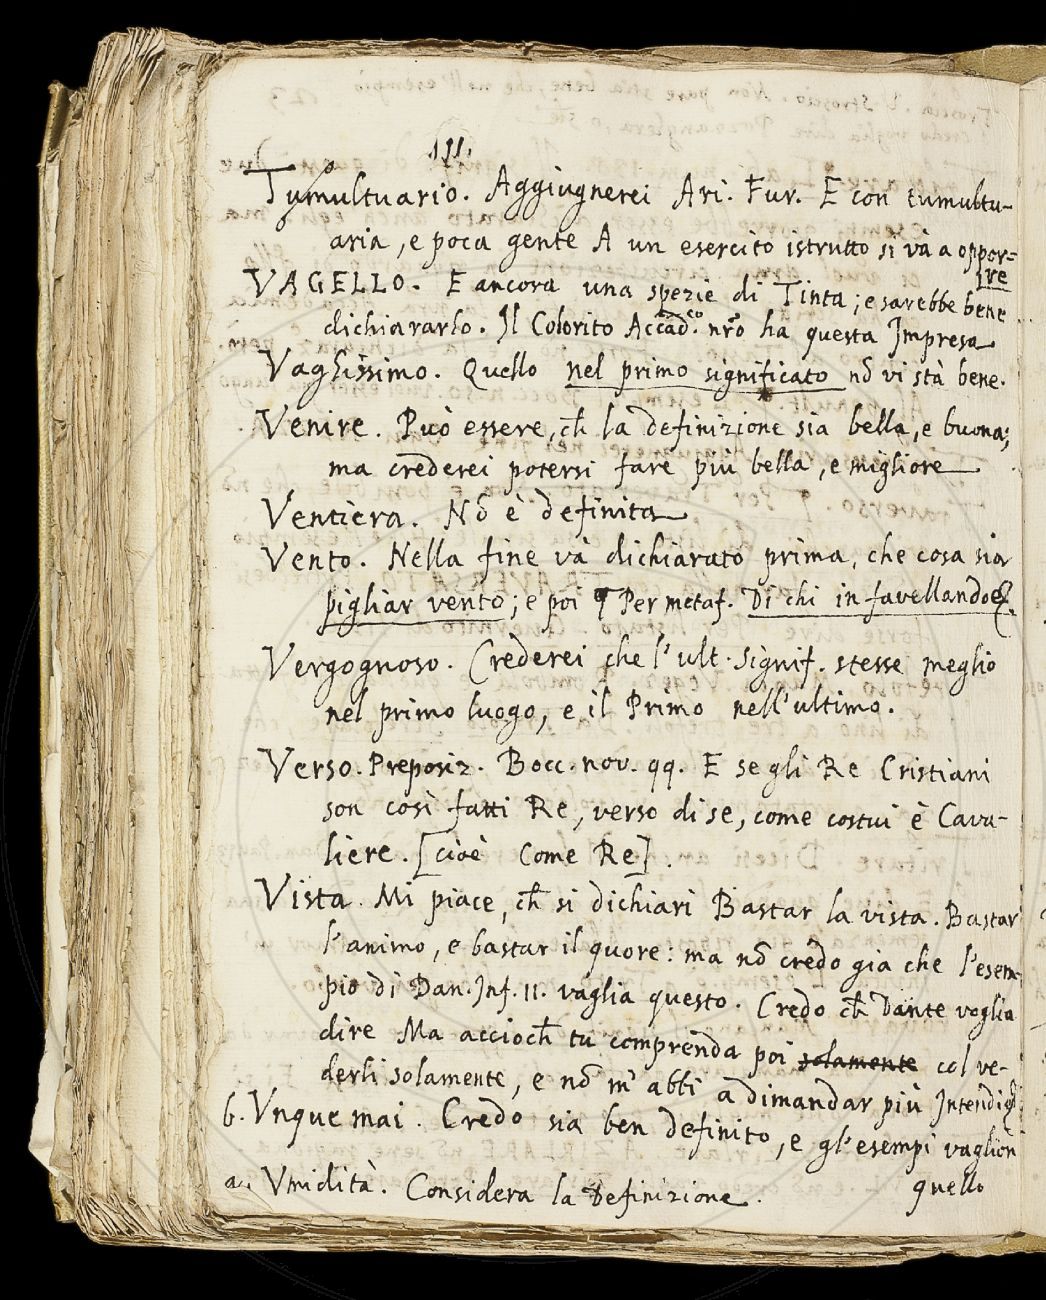 111.
Tumultuario. Aggiugnerei Ari. Fur. E con tumultu-
aria, e poca gente A un esercito istrutto si và a oppor=
re
VAGELLO. E ancora una spezie di Tinta; e sarebbe bene
dichiararlo. Il Colorito Accad.co nr̃o ha questa Impresa
Vaghissimo. Quello nel primo significato nõ vi stà bene.
Venire. Può essere, ch̃ la definizione sia bella, e buona;
ma crederei potersi fare più bella, e migliore
Ventiera. Nõ è definita
Vento. Nella fine và dichiarato prima, che cosa sia
pigliar vento; e poi ¶ Per metaf. Di chi in favellando &.
Vergognoso. Crederei che l'ult. signif. stesse meglio
nel primo luogo, e il Primo nell'ultimo.
Verso. Preposiz. Bocc. nov. 99. E se gli Re Cristiani
son così fatti Re, verso di se, come costui è Cava-
liere. [cioè Come Re].
Vista. Mi piace, ch̃ si dichiari Bastar la vista. Bastar
l'animo, e bastar il quore: ma nõ credo gia che l'esem-
pio di Dan. Inf. 11. vaglia questo. Credo ch̃ Dante voglia
dire Ma accioch̃ tu comprenda poi solamente col ve-
derli solamente, e nõ m'abbi a dimandar più
b. Unque mai. Credo sia ben definito, e gl'esempi vaglion
quello
a. Umidità. Considera la Definizione.